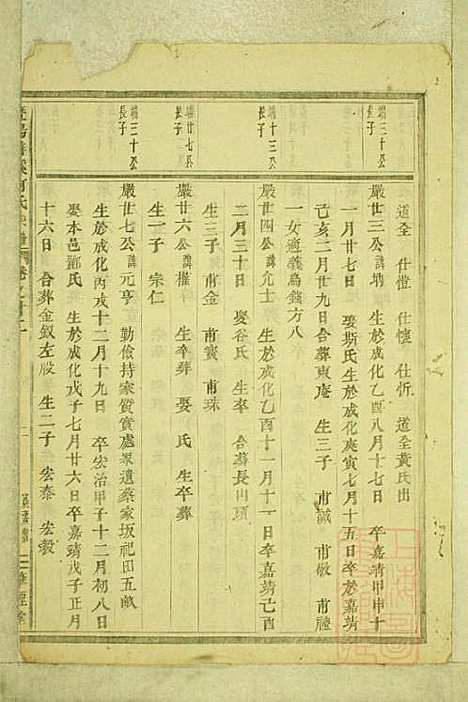 道全 仕愷 仕懷 仕忻 道全黃氏出
塘三十公長子
嚴廿三公諱 生於成化乙酉八月十七日 卒嘉靖甲申十
一月廿七日 娶斯氏生於成化庚寅七月十五日卒於嘉靖
己亥二月廿九日合葬東庵 生三子 甫誠 甫敬 甫
一女適義烏錢方八
塘十三公長子
嚴廿四公諱允士 生於成化乙酉十一月十一日卒嘉靖己酉
二月三十日 娶谷氏 生卒 合葬長山頭
生三子 甫金 甫寶 甫珠
塘廿七公長子
嚴廿六公諱權 生卒葬 娶 氏 生卒葬
生一子 宗仁
塘三十公長子
嚴廿七公諱元亨 勤儉持家質實處眾遺蔡家坂祀田五畝
生於成化丙戌十二月十九日 卒宏治甲子十二月初八日
娶本邑鄭氏 生於成化戊子七月廿六日卒嘉靖戊子正月
十六日 合葬金釵左股 生二子 宏泰 宏毅